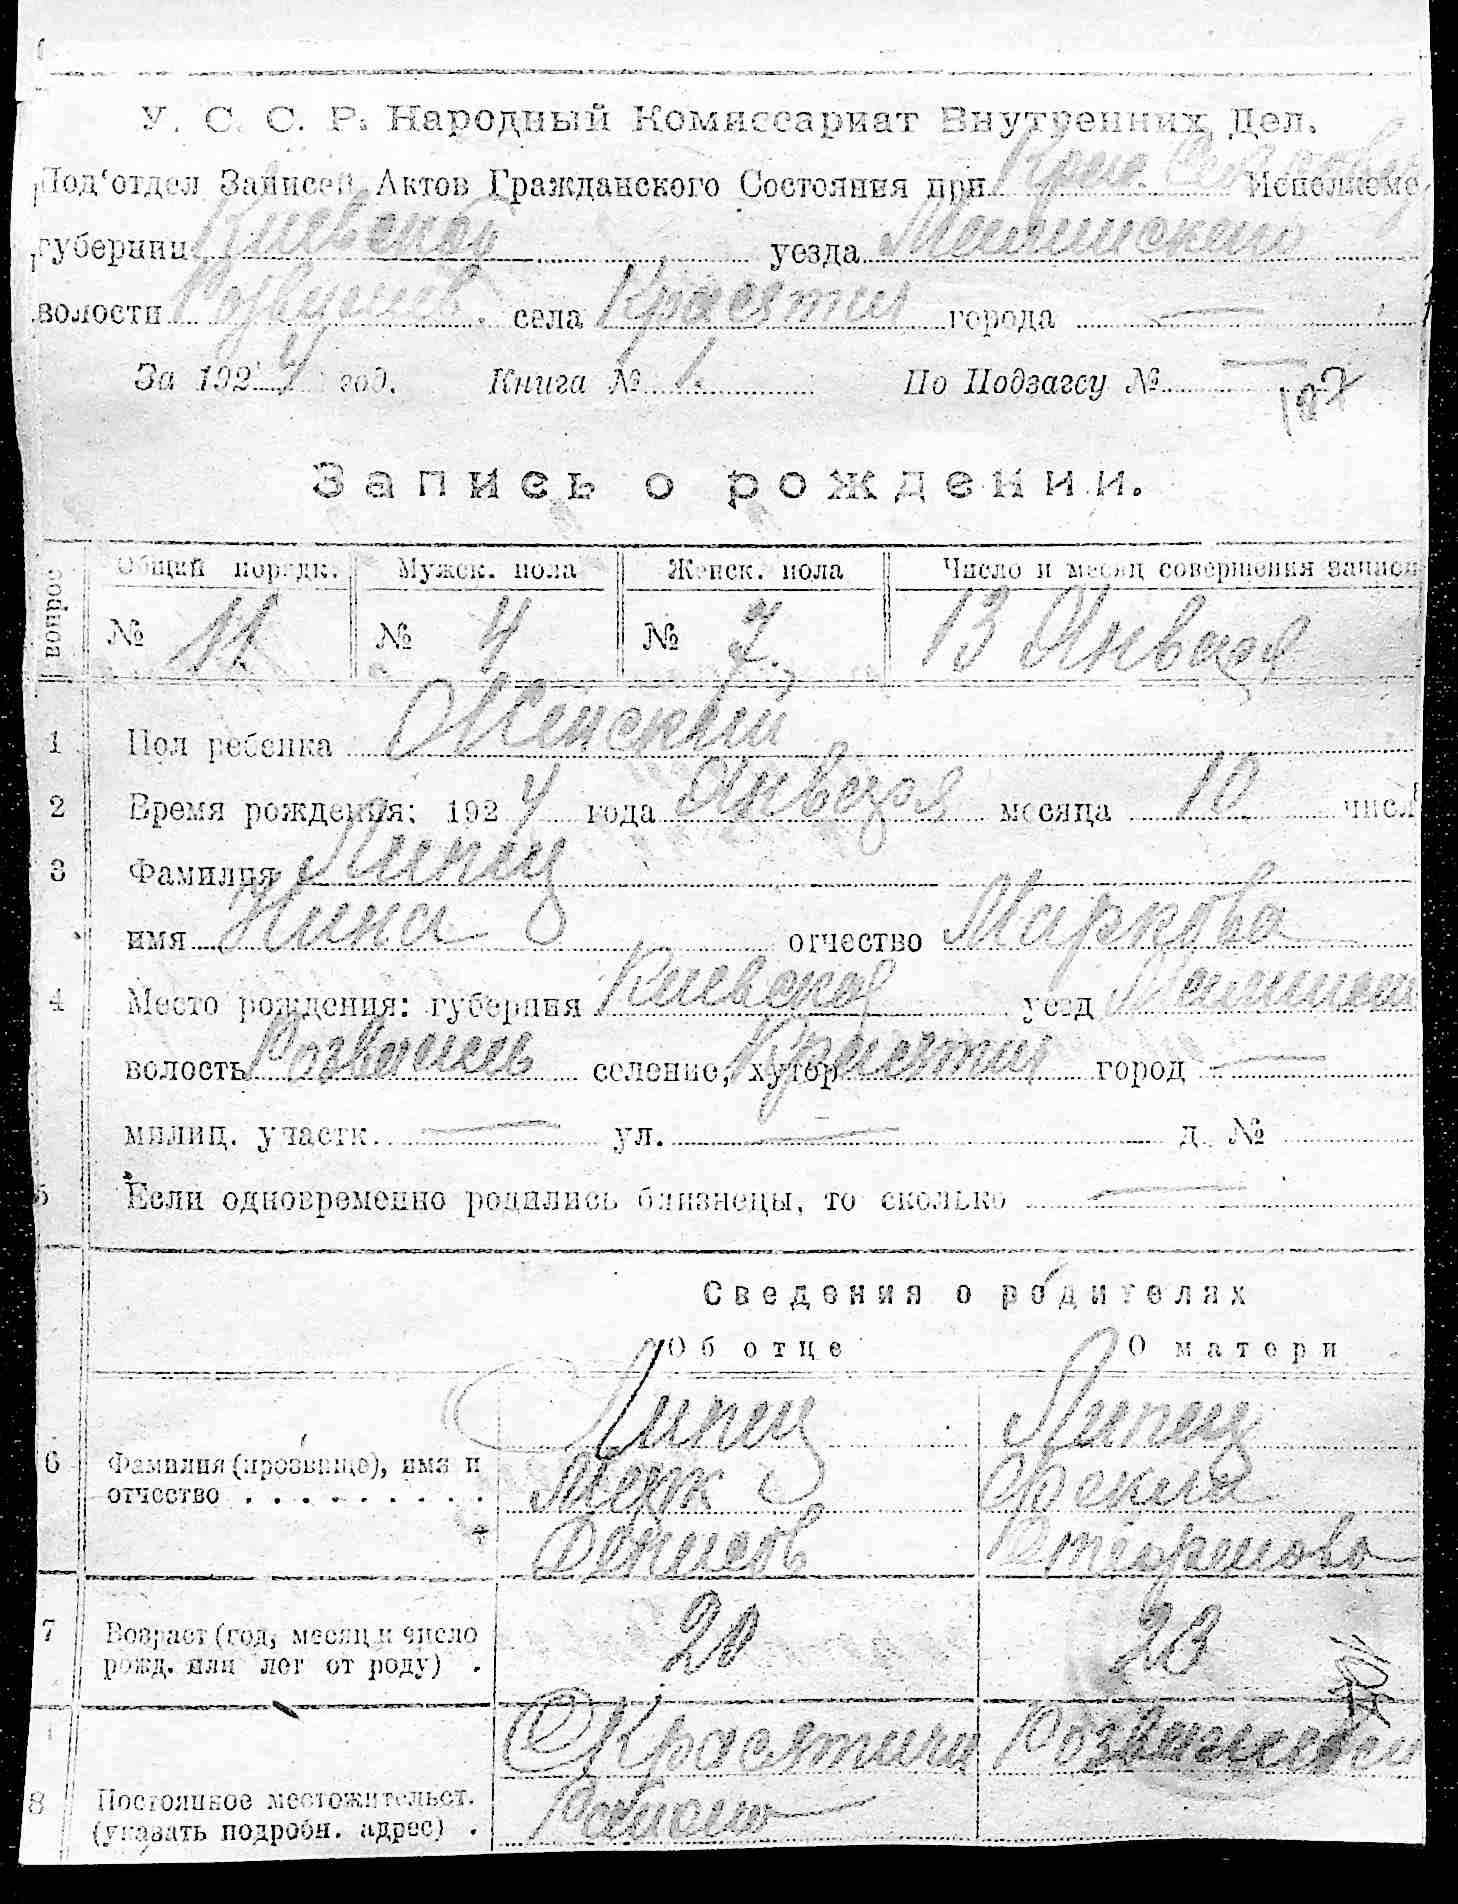 У. С. С. Р. Народный Комиссариат Внутренних Дел.
Под‘отдел Записей Актов Гражданского Состояния при Исполкоме
губернии Киевской уезда
волости села Красятичи города —
За 1924 год. Книга № 1. По Подзагсу № —
Запись о рождении.
вопрос Общий порядк. Мужск. пола Женск. пола Число и месяц совершения записи
№ 11 № 4 № 7. 13 Января
1 Пол ребенка Женский
2 Время рождения: 1924 года Января месяца 10 числ
3 Фамилия Липец
имя Нина отчество Маркова
4 Место рождения: губерния Киевской уезд
волость селение, хутор Красятичи город —
милиц. участк. — ул. — д. №
5 Если одновременно родились близнецы, то сколько —
Сведения о родителях
Об отце О матери
Липец Липец
6 Фамилия (прозвище), имя и Марк Фекла
отчество . . . . . . . . .
Денисов
7 Возраст (год, месяц и число 20
рожд. или лет от роду) .
Красятичи
8 Постоянное местожительст.
(указать подробн. адрес) .